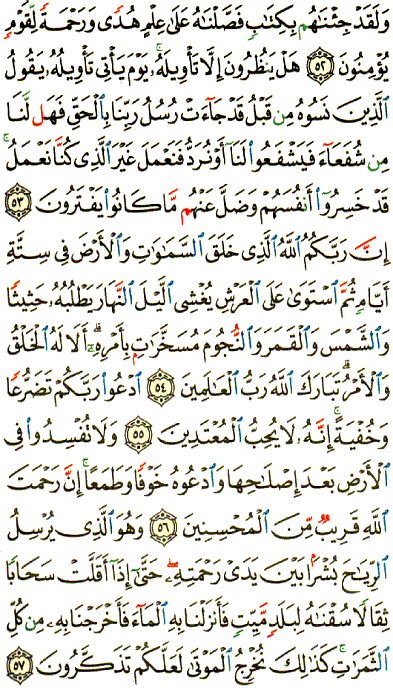 وَلَقَدْ جِئْنَٰهُم بِكِتَٰبٍ فَصَّلْنَٰهُ عَلَىٰ عِلْمٍ هُدًى وَرَحْمَةً لِّقَوْمٍ
يُؤْمِنُونَ ٥٢ هَلْ يَنظُرُونَ إِلَّا تَأْوِيلَهُۥ يَوْمَ يَأْتِى تَأْوِيلُهُۥ يَقُولُ
ٱلَّذِينَ نَسُوهُ مِن قَبْلُ قَدْ جَآءَتْ رُسُلُ رَبِّنَا بِٱلْحَقِّ فَهَل لَّنَا
مِن شُفَعَآءَ فَيَشْفَعُوا۟ لَنَآ أَوْ نُرَدُّ فَنَعْمَلَ غَيْرَ ٱلَّذِى كُنَّا نَعْمَلُ ۚ
قَدْ خَسِرُوٓا۟ أَنفُسَهُمْ وَضَلَّ عَنْهُم مَّا كَانُوا۟ يَفْتَرُونَ ٥٣
إِنَّ رَبَّكُمُ ٱللَّهُ ٱلَّذِى خَلَقَ ٱلسَّمَٰوَٰتِ وَٱلْأَرْضَ فِى سِتَّةِ
أَيَّامٍ ثُمَّ ٱسْتَوَىٰ عَلَى ٱلْعَرْشِ يُغْشِى ٱلَّيْلَ ٱلنَّهَارَ يَطْلُبُهُۥ حَثِيثًا
وَٱلشَّمْسَ وَٱلْقَمَرَ وَٱلنُّجُومَ مُسَخَّرَٰتٍۭ بِأَمْرِهِۦٓ ۗ أَلَا لَهُ ٱلْخَلْقُ
وَٱلْأَمْرُ ۗ تَبَارَكَ ٱللَّهُ رَبُّ ٱلْعَٰلَمِينَ ٥٤ ٱدْعُوا۟ رَبَّكُمْ تَضَرُّعًا
وَخُفْيَةً ۚ إِنَّهُۥ لَا يُحِبُّ ٱلْمُعْتَدِينَ ٥٥ وَلَا تُفْسِدُوا۟ فِى
ٱلْأَرْضِ بَعْدَ إِصْلَٰحِهَا وَٱدْعُوهُ خَوْفًا وَطَمَعًا ۚ إِنَّ رَحْمَتَ
ٱللَّهِ قَرِيبٌ مِّنَ ٱلْمُحْسِنِينَ ٥٦ وَهُوَ ٱلَّذِى يُرْسِلُ
ٱلرِّيَٰحَ بُشْرًۢا بَيْنَ يَدَىْ رَحْمَتِهِۦ ۖ حَتَّىٰٓ إِذَآ أَقَلَّتْ سَحَابًا
ثِقَالًا سُقْنَٰهُ لِبَلَدٍ مَّيِّتٍ فَأَنزَلْنَا بِهِ ٱلْمَآءَ فَأَخْرَجْنَا بِهِۦ مِن كُلِّ
ٱلثَّمَرَٰتِ ۚ كَذَٰلِكَ نُخْرِجُ ٱلْمَوْتَىٰ لَعَلَّكُمْ تَذَكَّرُونَ ٥٧